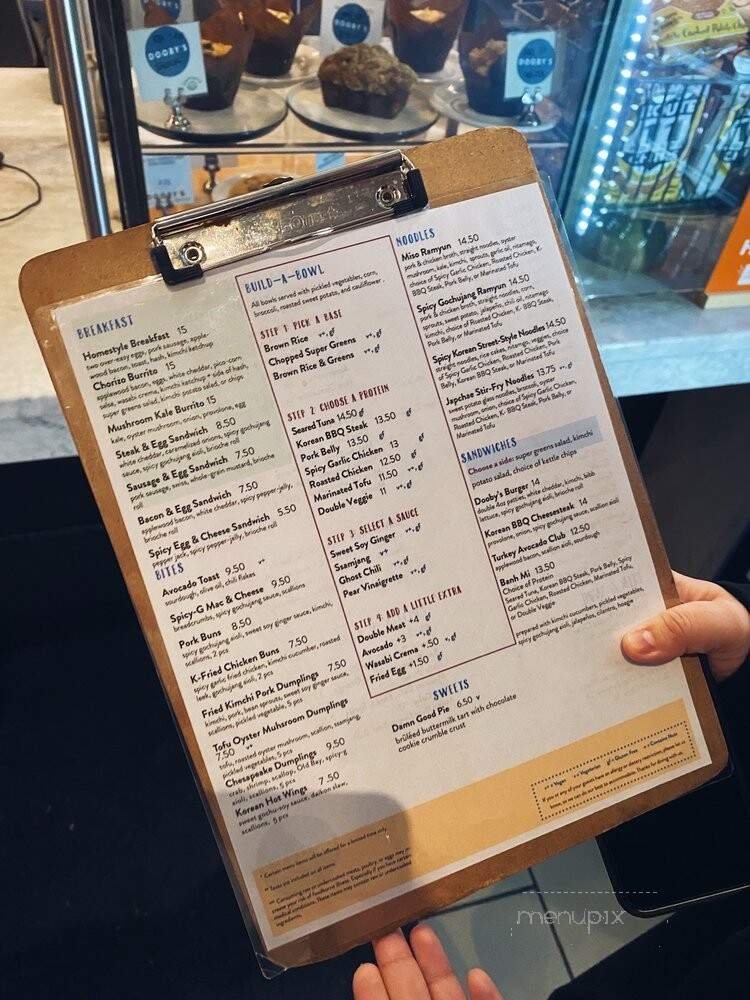 DOOBY'S
DOOBY'S
DOOBY'S
BREAKFAST
Homestyle Breakfast 15
two over-easy eggs, pork sausage, apple-
wood bacon, toast, hash, kimchi ketchup
Chorizo Burrito 15
applewood bacon, eggs, white cheddar, pico-corn
salsa, wasabi crema, kimchi ketchup + side of hash,
super greens salad, kimchi potato salad, or chips
Mushroom Kale Burrito 15
kale, oyster mushroom, onion, provolone, egg
Steak & Egg Sandwich 8.50
white cheddar, caramelized onions, spicy gochujang
sauce, spicy gochujang aioli, brioche roll
Sausage & Egg Sandwich 7.50
pork sausage, swiss, whole-grain mustard, brioche
roll
Bacon & Egg Sandwich 7.50
applewood bacon, white cheddar, spicy pepper-jelly,
brioche roll
Spicy Egg & Cheese Sandwich 5.50
pepper jack, spicy pepper-jelly, brioche roll
BITES
Avocado Toast 9.50
sourdough, olive oil, chili flakes
Spicy-G Mac & Cheese 9.50
breadcrumbs, spicy gochujang sauce, scallions
Pork Buns 8.50
spicy gochujang aioli, sweet soy ginger sauce, kimchi,
scallions, 2 pcs
K-Fried Chicken Buns 7.50
spicy garlic fried chicken, kimchi cucumber, roasted
leek, gochujang aioli, 2 pcs
Fried Kimchi Pork Dumplings 7.50
kimchi, pork, bean sprouts, sweet soy ginger sauce,
scallions, pickled vegetable, 5 pcs
Tofu Oyster Muhsroom Dumplings
7.50 **
tofu, roasted oyster mushroom, scallion, ssamjang,
pickled vegetables, 5 pcs
Chesapeake Dumplings 9.50
crab, shrimp, scallop, Old Bay, spicy-g
aioli, scallions, 5 pcs
Korean Hot Wings 7.50
sweet gochu-soy sauce, daikon slaw,
scallions, 5 pcs
BUILD-A-BOWL
All bowls served with pickled vegetables, corn,
broccoli, roasted sweet potato, and cauliflower.
STEP 1: PICK A BASE
Brown Rice
Chopped Super Greens
Brown Rice & Greens
STEP 2: CHOOSE A PROTEIN
Seared Tuna 14.50
Korean BBQ Steak 13.50
Pork Belly 13.50
Spicy Garlic Chicken 13
Roasted Chicken 12.50
Marinated Tofu 11.50
Double Veggie 11
STEP 3: SELECT A SAUCE
Sweet Soy Ginger
Ssamjang
Ghost Chili
Pear Vinaigrette
STEP 4: ADD A LITTLE EXTRA
Double Meat +4
Avocado +3
Wasabi Crema +.50
Fried Egg +1.50
SWEETS
Damn Good Pie 6.50 v
brûléed buttermilk tart with chocolate
cookie crumble crust
NOODLES
Miso Ramyun 14.50
pork & chicken broth, straight noodles, oyster
mushroom, kale, kimchi, sprouts, garlic oil, nitamago,
choice of Spicy Garlic Chicken, Roasted Chicken, K-
BBQ Steak, Pork Belly, or Marinated Tofu
Spicy Gochujang Ramyun 14.50
pork & chicken broth, straight noodles, corn,
sprouts, sweet potato, jalapeño, chili oil, nitamago
kimchi, choice of Roasted Chicken, K- BBQ Steak,
Pork Belly, or Marinated Tofu
Spicy Korean Street-Style Noodles 14.50
straight noodles, rice cakes, nitamago, veggies, choice
of Spicy Garlic Chicken, Roasted Chicken, Pork
Belly, Korean BBQ Steak, or Marinated Tofu
Japchae Stir-Fry Noodles 13.75
sweet potato glass noodles, broccoli, oyster
mushroom, onion, choice of Spicy Garlic Chicken,
Roasted Chicken, K- BBQ Steak, Pork Belly, or
Marinated Tofu
SANDWICHES
Choose a side: super greens salad, kimchi
potato salad, choice of kettle chips
Dooby's Burger 14
double 4oz patties, white cheddar, kimchi, bibb
lettuce, spicy gochujang aioli, brioche
Korean BBQ Cheesesteak 14
provolone, onion, spicy gochujang sauce, scallion aioli
Turkey Avocado Club 12.50
applewood bacon, scallion aioli, sourdough
Banh Mi 13.50
Choice of Protein
Seared Tuna, Korean BBQ Steak, Pork Belly, Spicy
Garlic Chicken, Roasted Chicken, Marinated Tofu,
or Double Veggie
prepared with kimchi cucumbers, pickled vegetables,
spicy gochujang aioli, jalapeños, cilantro, hoagie
** = Vegan * = Vegetarian gf = Gluten Free + = Contains Nuts
If you or any of your guests have an allergy or dietary restriction, please let us
know, so we can do our best to accommodate. Thanks for dining with us.
* Certain menu items will be offered for a limited time only.
** Taxes are included on all items.
*** Consuming raw or undercooked meats, poultry, or eggs may in
crease your risk of foodborne illness. Especially if you have certain
medical conditions. These items may contain raw or undercooked
ingredients.
menupix